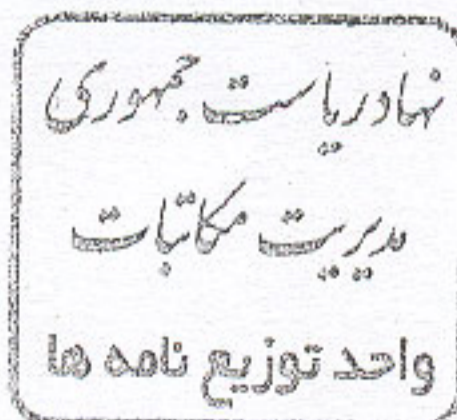 نهاد ریاست جمهوری
مدیریت مکاتبات
واحد توزیع نامه ها